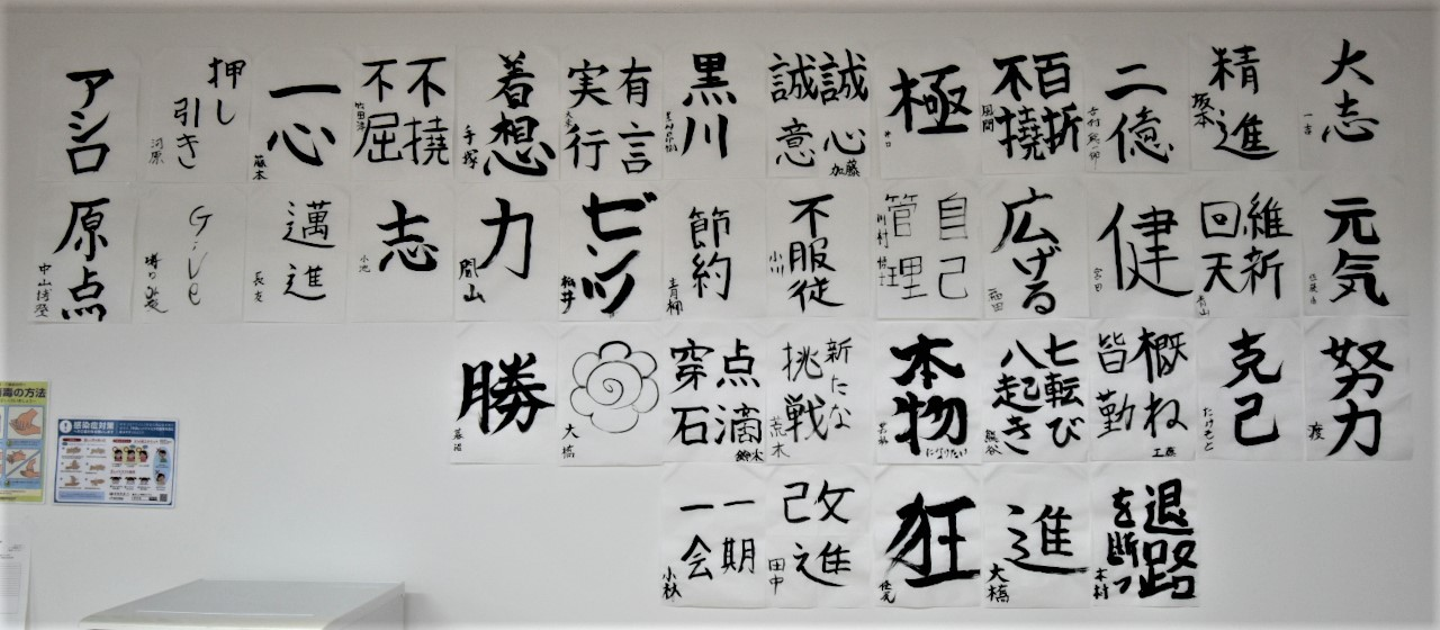 大志
一吉
精進
坂本
二億
百折
不撓
風間
極
井口
誠心
誠意
加藤
黒川
有言
実行
着想
手塚
不撓
不屈
一心
藤本
押し
引き
河原
アシロ
元気
維新
回天
青山
健
宮田
広げる
西田
自己
管理
川村
不服従
小川
節約
青柳
ゼンツ
桝井
力
閻山
志
小池
邁進
長友
Give
原点
中山
努力
渡
克己
たけもと
概ね
皆勤
工藤
七転び
八起き
熊谷
本物
になりたい
新たな
挑戦
荒木
点滴
穿石
鈴木
大橋
勝
退路
を断つ
木村
進
大橋
狂
改進
己
田中
一期
一会
小林
感染症対策
毒の方法